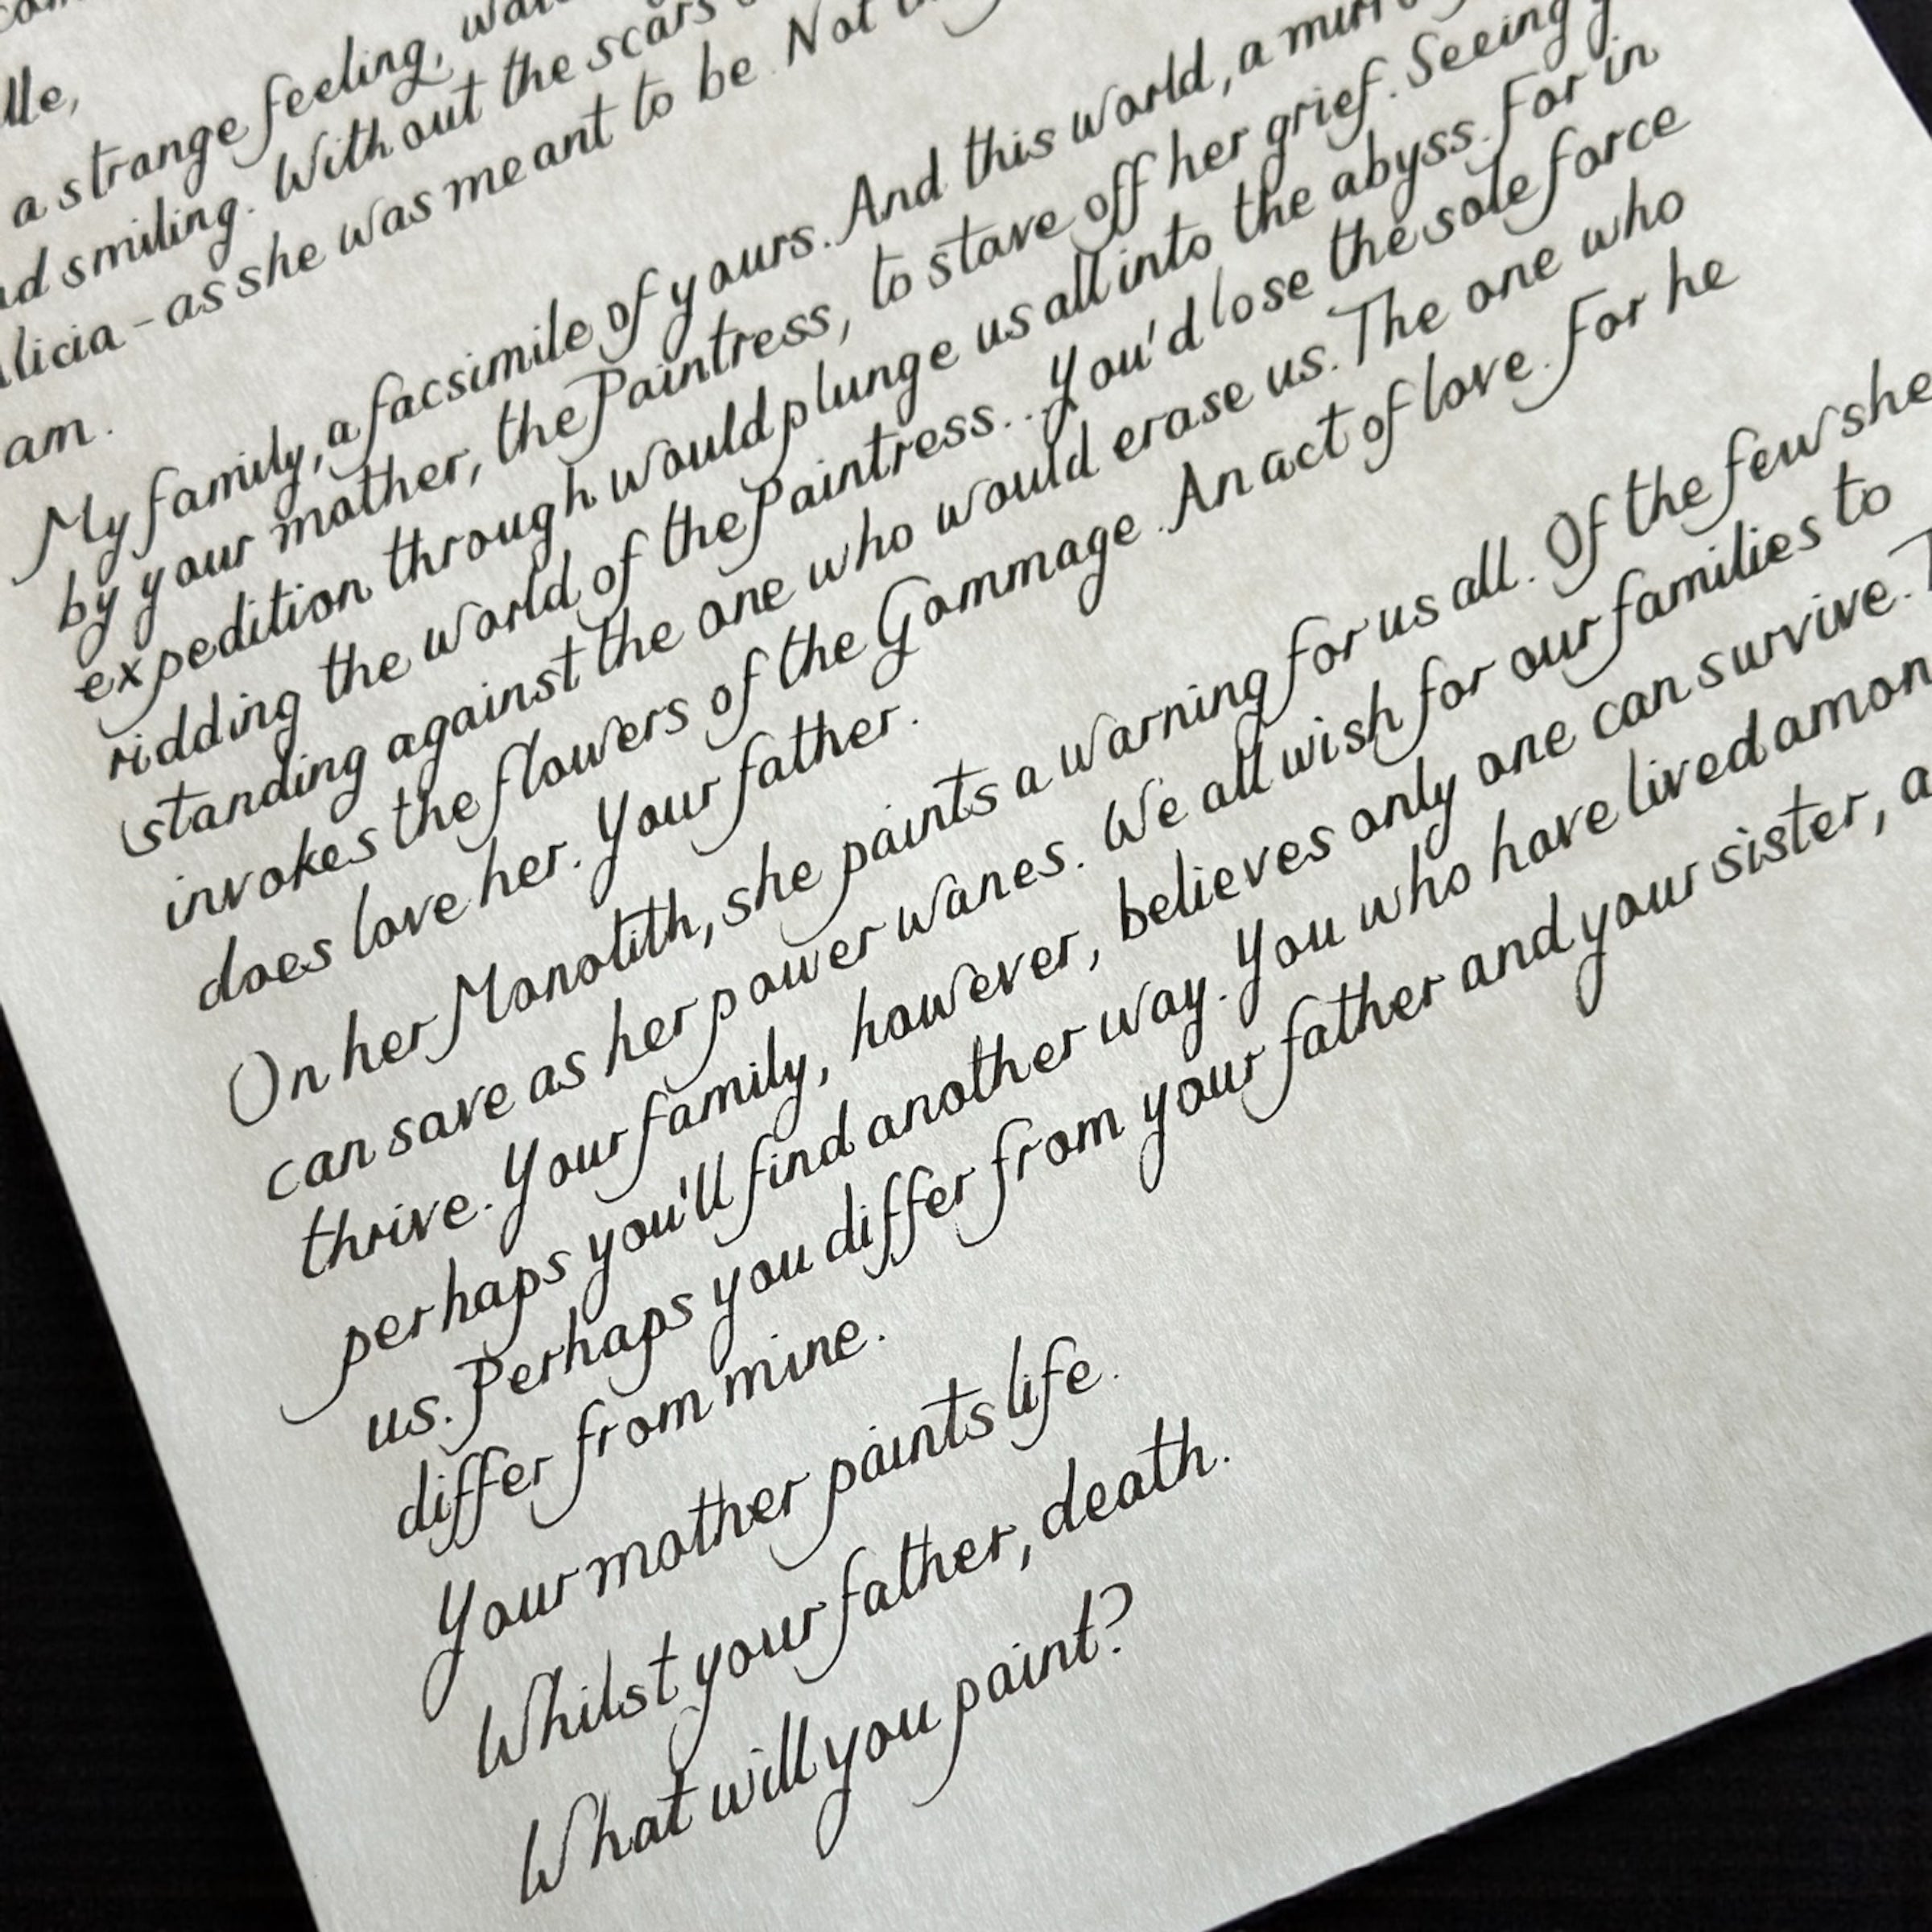 a strange feeling,
smiling. Without the scars
as she was meant to be. Not
am.
My family, a facsimile of yours. And this world, a
by your mother, the Paintress, to stave off her grief. Seeing
expedition through would plunge us all into the abyss. For in
ridding the world of the Paintress... You'd lose the sole force
standing against the one who would erase us. The one who
invokes the flowers of the Gommage. An act of love. For he
does love her. Your father.
On her Monolith, she paints a warning for us all. Of the few she
can save as her power wanes. We all wish for our families to
thrive. Your family, however, believes only one can survive.
perhaps you'll find another way. You who have lived
us. Perhaps you differ from your father and your sister,
differ from mine.
Your mother paints life.
Whilst your father, death.
What will you paint?